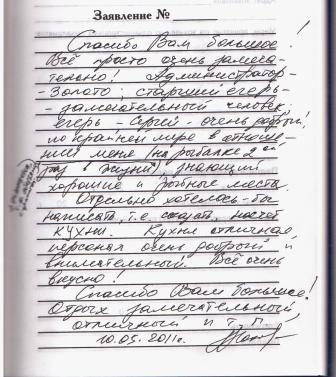 Заявление № ______
Спасибо Вам большое!
Всё просто очень замеча-
тельно! Администратор -
- Золото, старший егерь -
- замечательный человек,
егерь - Сергей - очень добрый,
по крайней мере в отноше-
нии меня (на рыбалке 2ой
раз в жизни) знающий
хорошие и рыбные места.
Отдельно хотелось-бы
написать, т.е. сказать, насчет
кухни. Кухня отличная,
персонал очень добрый и
внимательный. Всё очень
вкусно!
Спасибо Вам большое!
Отдых замечательный,
отличный и т.п.
10.05.2011г.